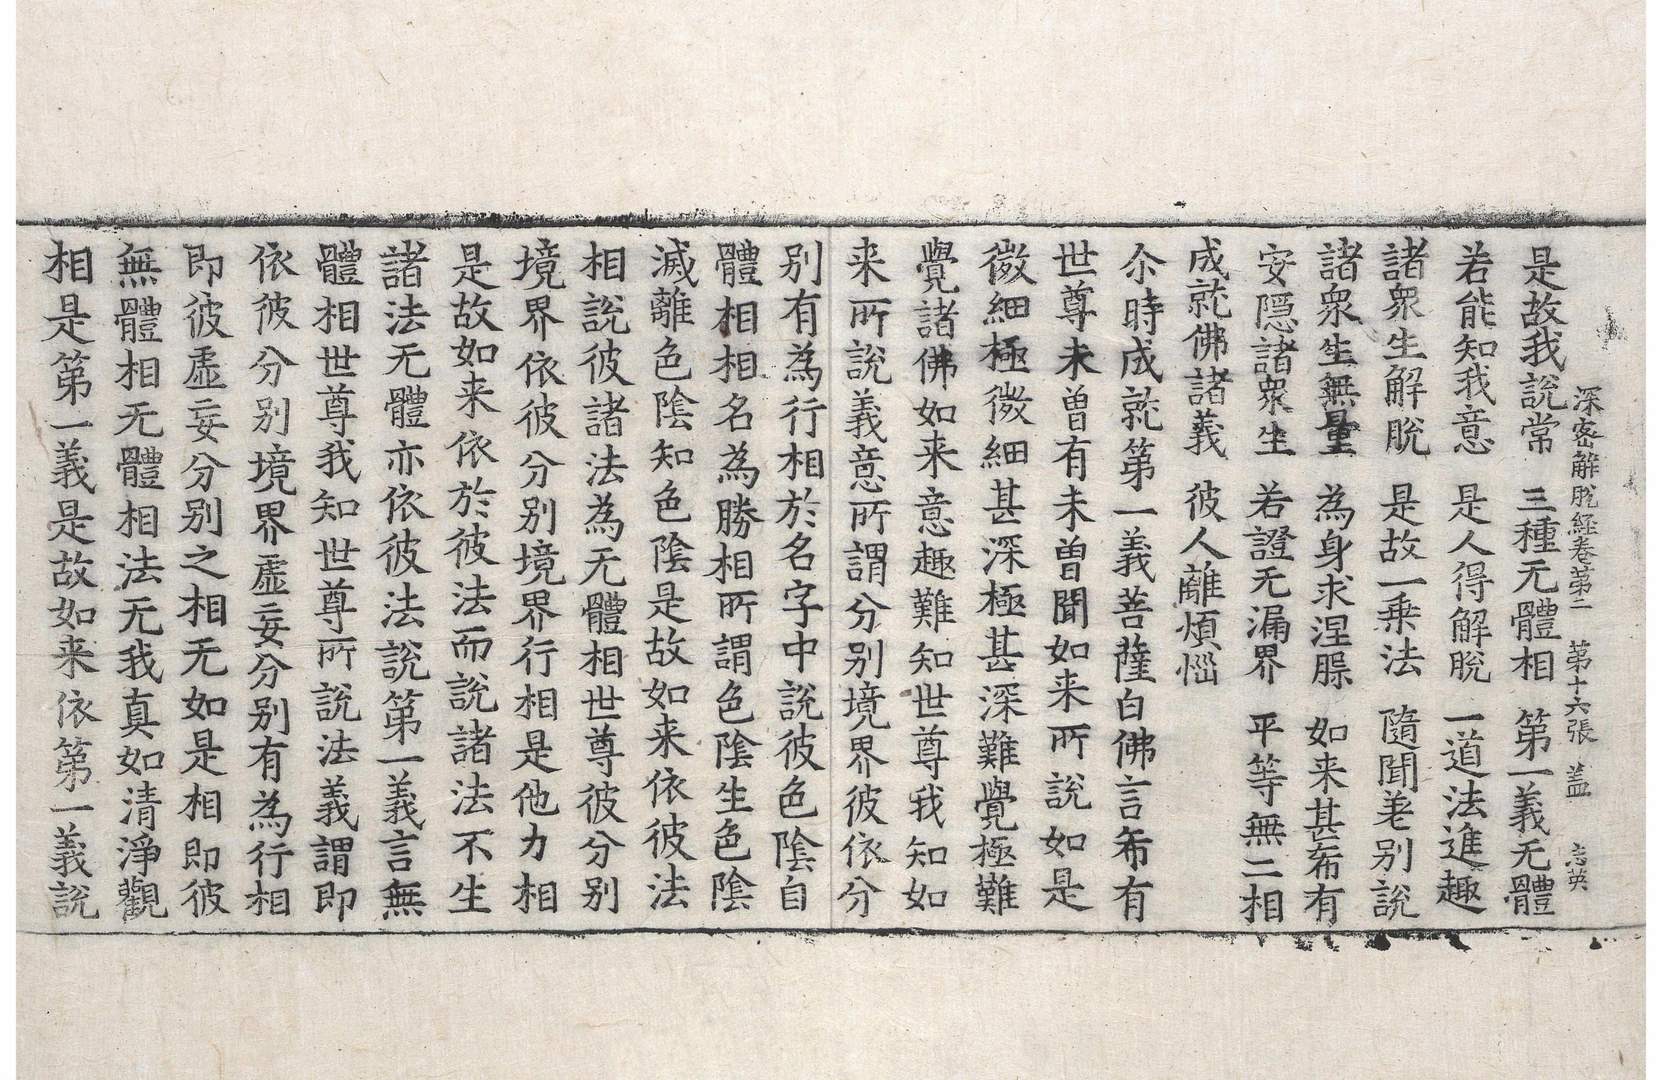 深密解脫経卷第二 第十六張 盖 志英
是故我說常 三種无體相 第一義无體
若能知我意 是人得解脫 一道法進趣
諸衆生解脫 是故一乗法 隨聞差別說
諸衆生無量 為身求涅㬹 如来甚希有
安隱諸衆生 若證无漏界 平等無二相
成就佛諸義 彼人離煩惱
尒時成就第一義菩薩白佛言希有
世尊未曾有未曾聞如来所說如是
微細極微細甚深極甚深難覺極難
覺諸佛如来意趣難知世尊我知如
来所說義意所謂分別境界彼依分
別有為行相於名字中說彼色陰自
體相相名為勝相所謂色陰生色陰
滅離色陰知色陰是故如来依彼法
相說彼諸法為无體相世尊彼分別
境界依彼分別境界行相是他力相
是故如来依於彼法而說諸法不生
諸法无體亦依彼法說第一義言無
體相世尊我知世尊所說法義謂即
依彼分別境界虛妄分別有為行相
即彼虛妄分別之相无如是相即彼
無體相无體相法无我真如清淨觀
相是第一義是故如来依第一義說